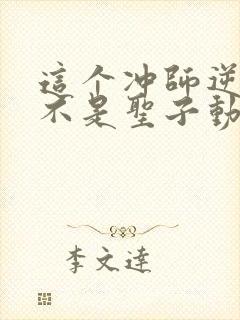 這个冲師逆
不是聖子動
李文達